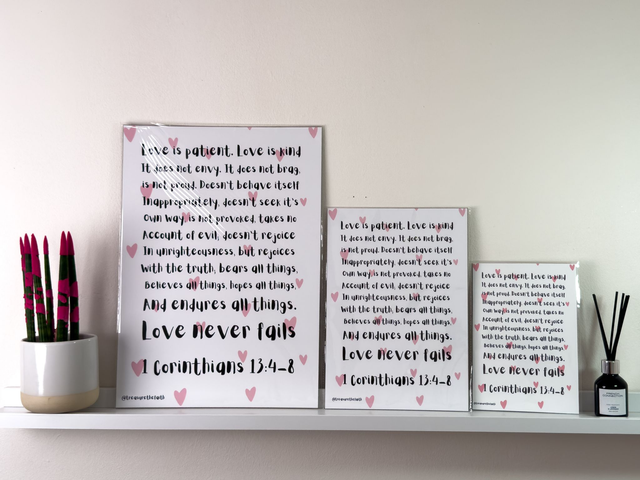 Love is patient. Love is kind
It does not envy. It does not brag,
is not proud. Doesn't behave itself
Inappropriately, doesn't seek it's
Own way, is not provoked, takes no
Account of evil, doesn't rejoice
In unrighteousness, but rejoices
With the truth, bears all things,
Believes all things, hopes all things,
And endures all things.
Love never fails
1 Corinthians 13:4-8
Love is patient. Love is kind
It does not envy. It does not brag,
is not proud. Doesn't behave itself
Inappropriately, doesn't seek it's
Own way, is not provoked, takes no
Account of evil, doesn't rejoice
In unrighteousness, but rejoices
With the truth, bears all things,
Believes all things, hopes all things,
And endures all things.
Love never fails
1 Corinthians 13:4-8
Love is patient. Love is kind
It does not envy. It does not brag,
is not proud. Doesn't behave itself
Inappropriately, doesn't seek it's
Own way, is not provoked, takes no
Account of evil, doesn't rejoice
In unrighteousness, but rejoices
With the truth, bears all things,
Believes all things, hopes all things,
And endures all things.
Love never fails
1 Corinthians 13:4-8